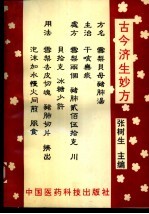 古今济生妙方
张树生 主编
方名 雪梨贝母猪肺汤
主治 干咳无痰
处方 雪梨两个 猪肺贰佰伍拾克 川
贝拾克 冰糖少许
用法 雪梨去皮切块 猪肺切片 挤出
泡沫加水慢火同煎 服食
中国医药科技出版社